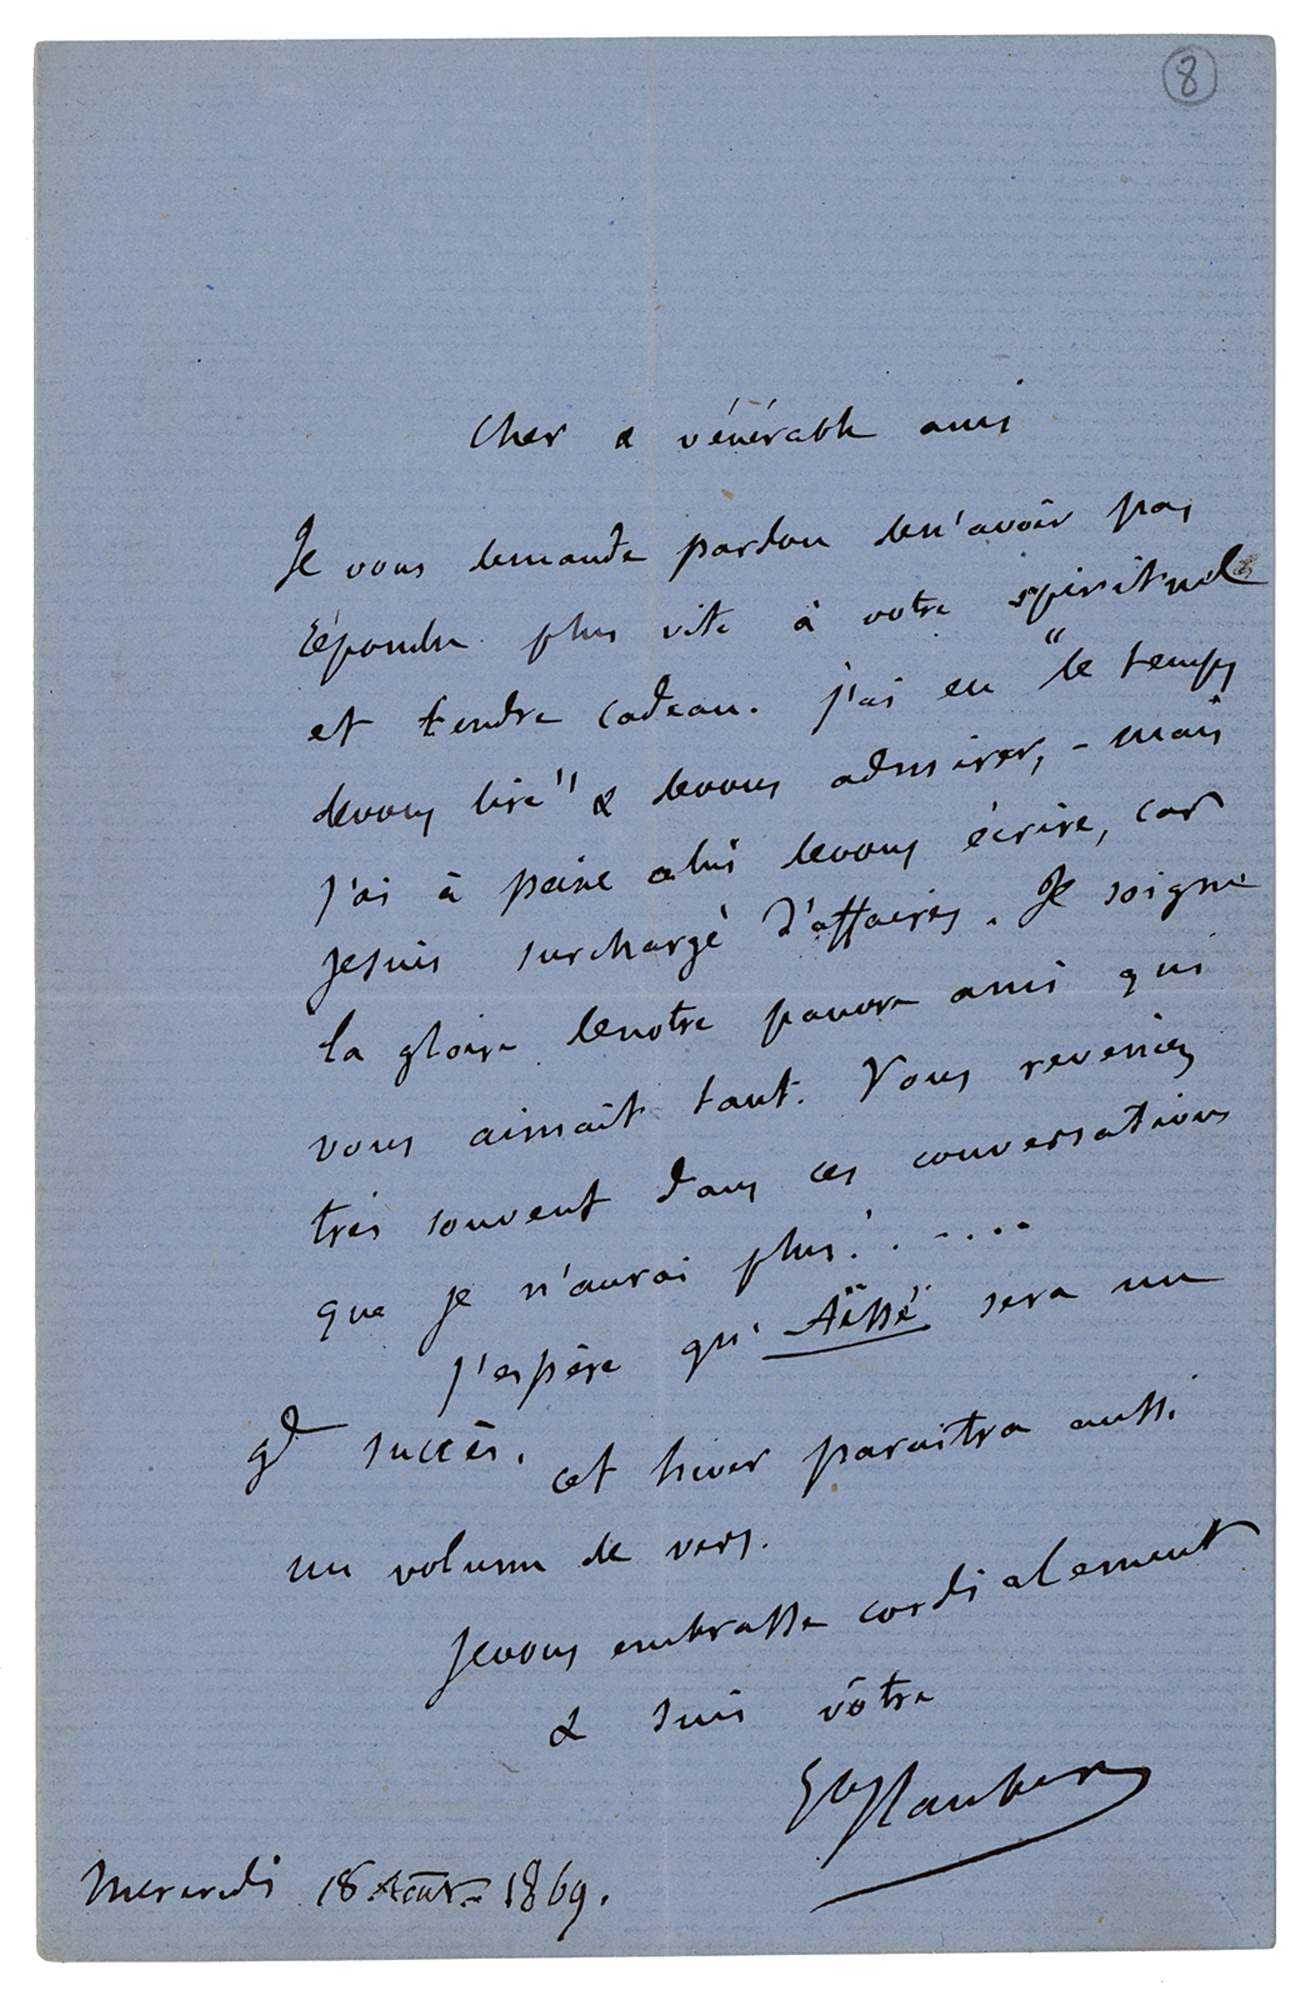 8
Cher & vénérable ami
Je vous demande pardon de n'avoir pas
répondu plus vite à votre spirituel
et tendre cadeau. j'ai eu "le temps
de vous lire" & de vous admirer, - mais
j'ai à peine celui de vous écrire, car
je suis surchargé d'affaires. Je soigne
la gloire de notre pauvre ami qui
vous aimait tant. Vous reveniez
très souvent dans ces conversations
que je n'aurai plus! . - . . . .
J'espère qu' Aïssé sera un
gd succès. cet hiver paraitra aussi
un volume de vers.
Je vous embrasse cordialement
& suis vôtre
Gve Flaubert
Mercredi 18 Août 1869.